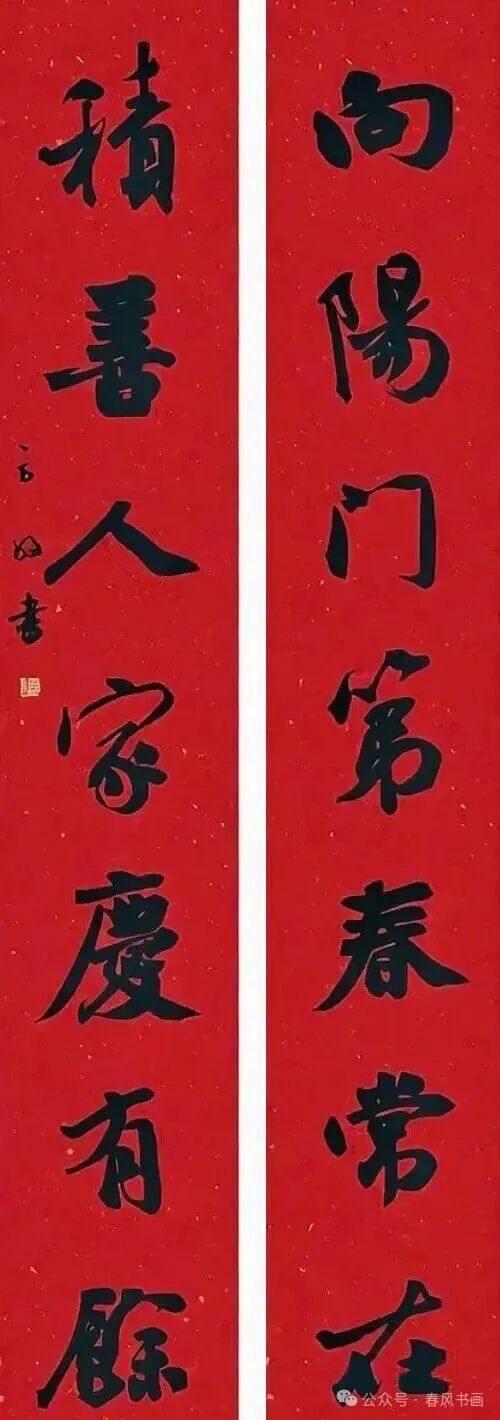 向陽门第春常在
積善人家慶有餘
书
公众号·春风书画